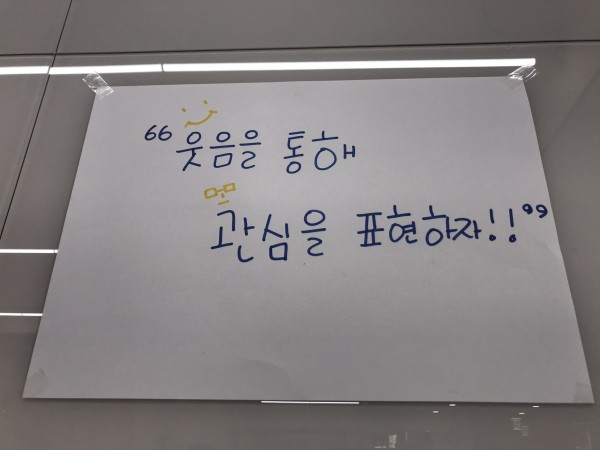 “웃음을 통해
관심을 표현하자!!”